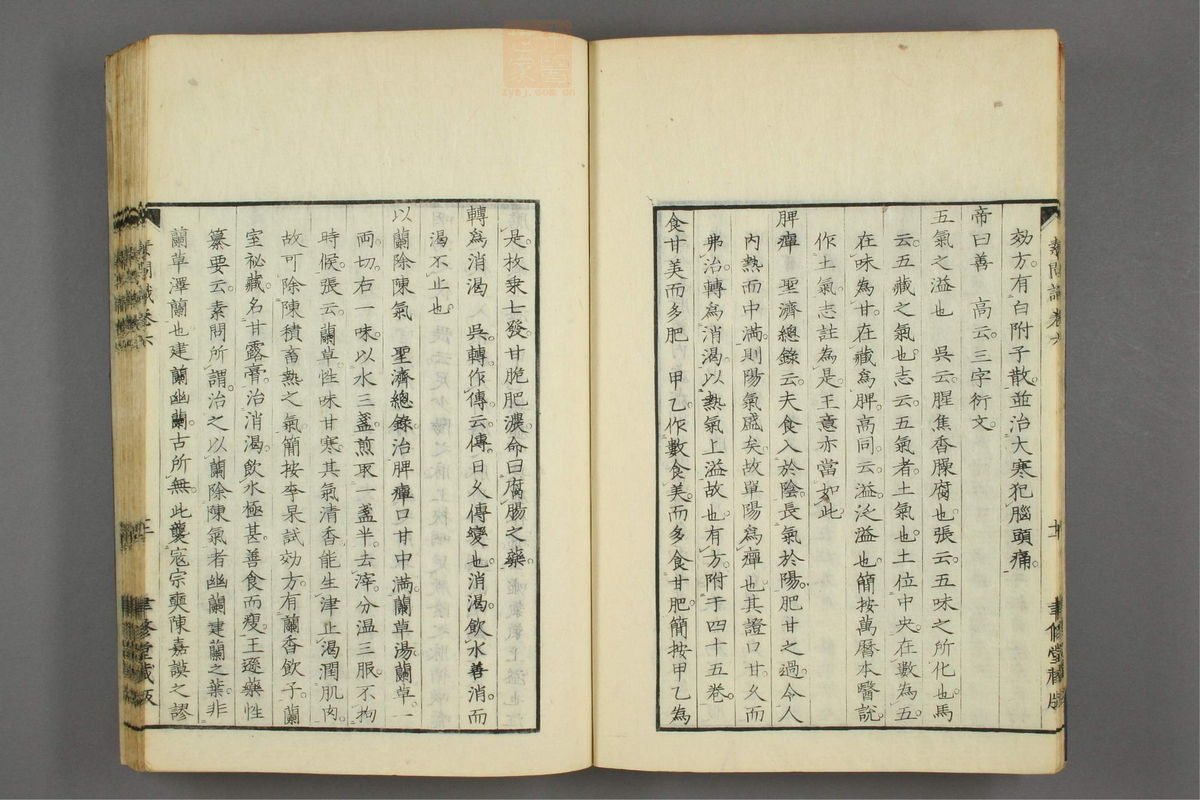 效方。有白附子散。並治大寒犯腦頭痛。
帝曰善　高云。三字衍文。
五氣之溢也　吳云。腥焦香臊腐也。張云。五味之所化也。馬
云。五藏之氣也。志云。五氣者。土氣也。土位中央。在數為五。
在味為甘。在藏為脾。高同。云。溢。泛溢也。簡按萬曆本醫說。
作土氣。志註為是。王意亦當如此。
脾癉　聖濟總錄云。夫食入於陰。長氣於陽。肥甘之過。令人
內熱而中滿。則陽氣盛矣。故單陽為癉也。其證口甘。久而
弗治。轉為消渴。以熱氣上溢故也。有方。附于四十五卷。
食甘美而多肥　甲乙。作數食美。而多食甘肥。簡按甲乙為
是。枚乘七發。甘脆肥濃。命曰腐腸之藥。
轉為消渴　吳。轉。作傳。云。傳。日久傳變也。消渴。飲水善消。而
渴不止也。
以蘭除陳氣　聖濟總錄。治脾癉口甘中滿。蘭草湯。蘭草。一
兩。切。右一味。以水三盞。煎取一盞半。去滓。分溫三服。不拘
時候。張云。蘭草。性味甘寒。其氣清香。能生津止渴。潤肌肉。
故可除陳積畜熱之氣。簡按李杲試效方。有蘭香飲子。蘭
室祕藏。名甘露膏。治消渴。飲水極甚。善食而瘦。王遜藥性
纂要云。素問所謂。治之以蘭。除陳氣者。幽蘭建蘭之葉。非
蘭草澤蘭也。建蘭幽蘭。古所無。此襲寇宗奭陳嘉謨之謬
素問識卷六
聿修堂藏版